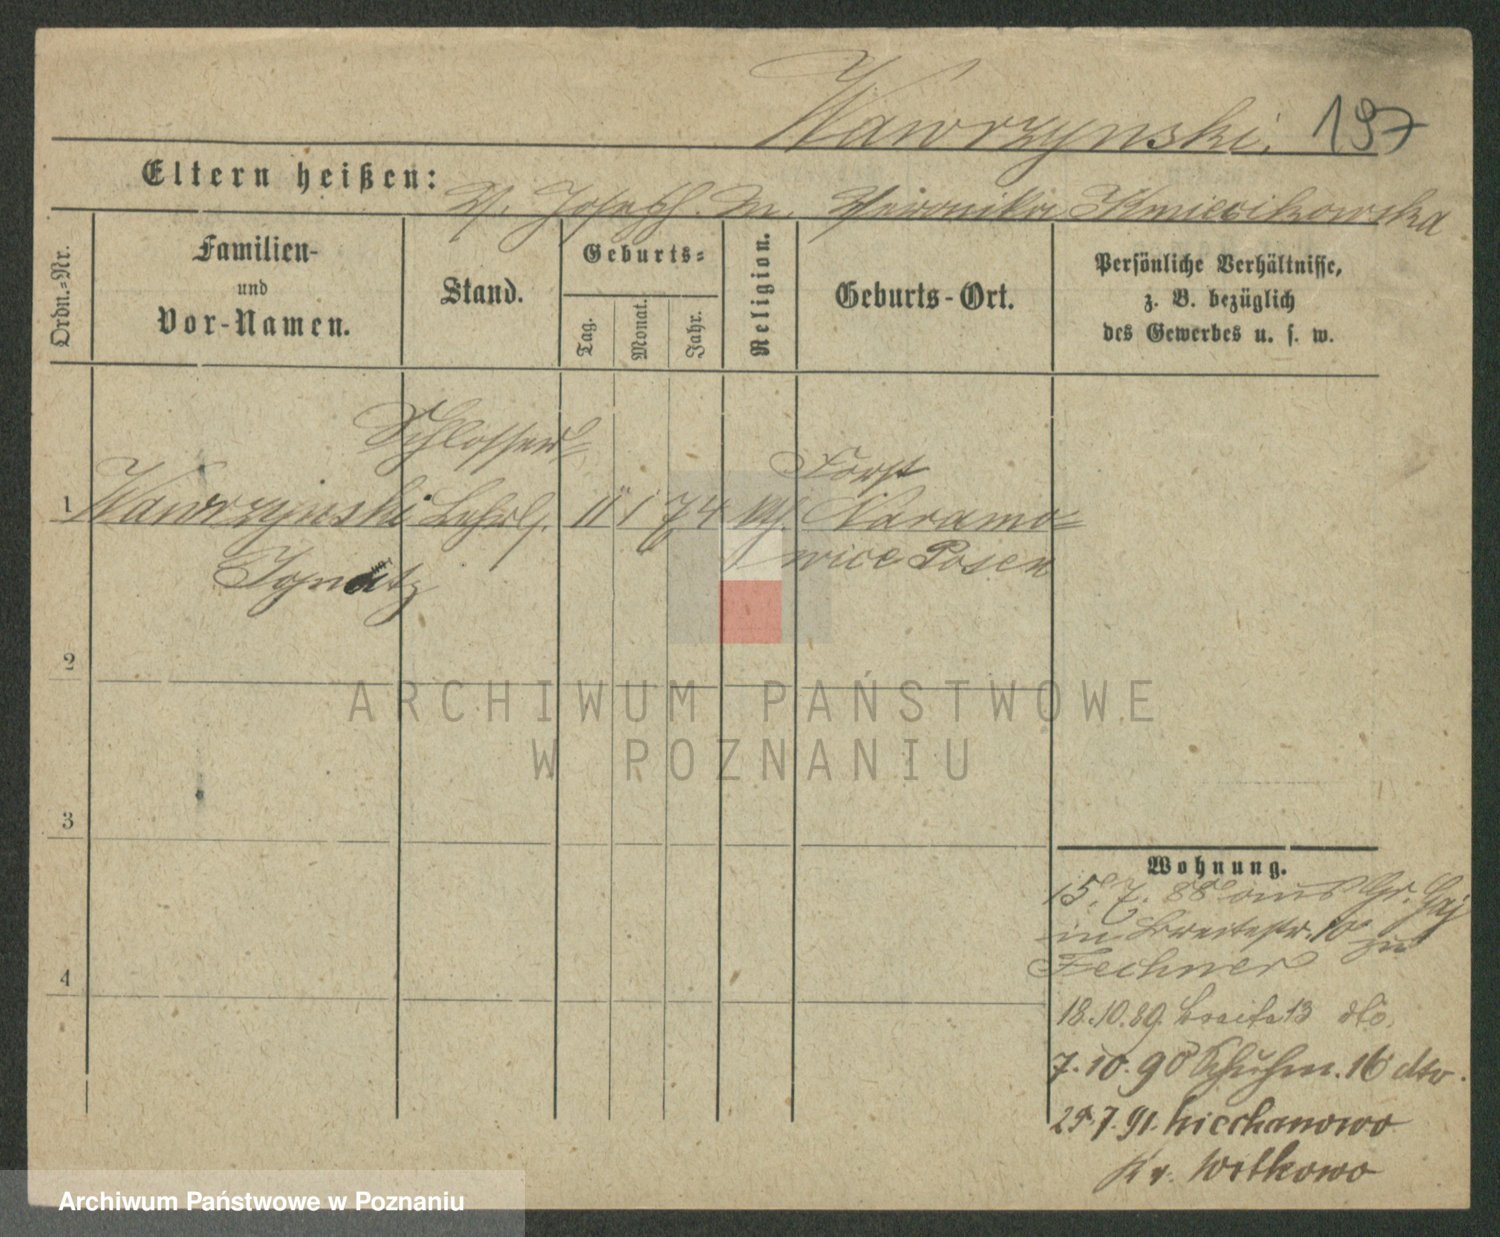 Wawrzynski. 197
Eltern heißen: V. Joseph. M. Veronika Kmiecikowska
Ordn.=Nr.
Familien-
und
Vor-Namen.
Stand.
Geburts=
Tag.
Monat.
Jahr.
Religion.
Geburts-Ort.
Persönliche Verhältnisse,
z. B. bezüglich
des Gewerbes u. s. w.
Schlosser=
Forst
1 Wawrzynski Lehrl. 11 1 74 Naramo=
Ignatz wice Posen
2
3
4
Wohnung.
15. 7. 88 aus Gr. Gaj
in Breitestr. 10 zu
Fechner
18.10.89. Breite 13 dto.
7.10.90 Schuhm. 16 dto.
7.91. Kiechanowo
Kr. Witkowo
ARCHIWUM PAŃSTWOWE
W POZNANIU
Archiwum Państwowe w Poznaniu